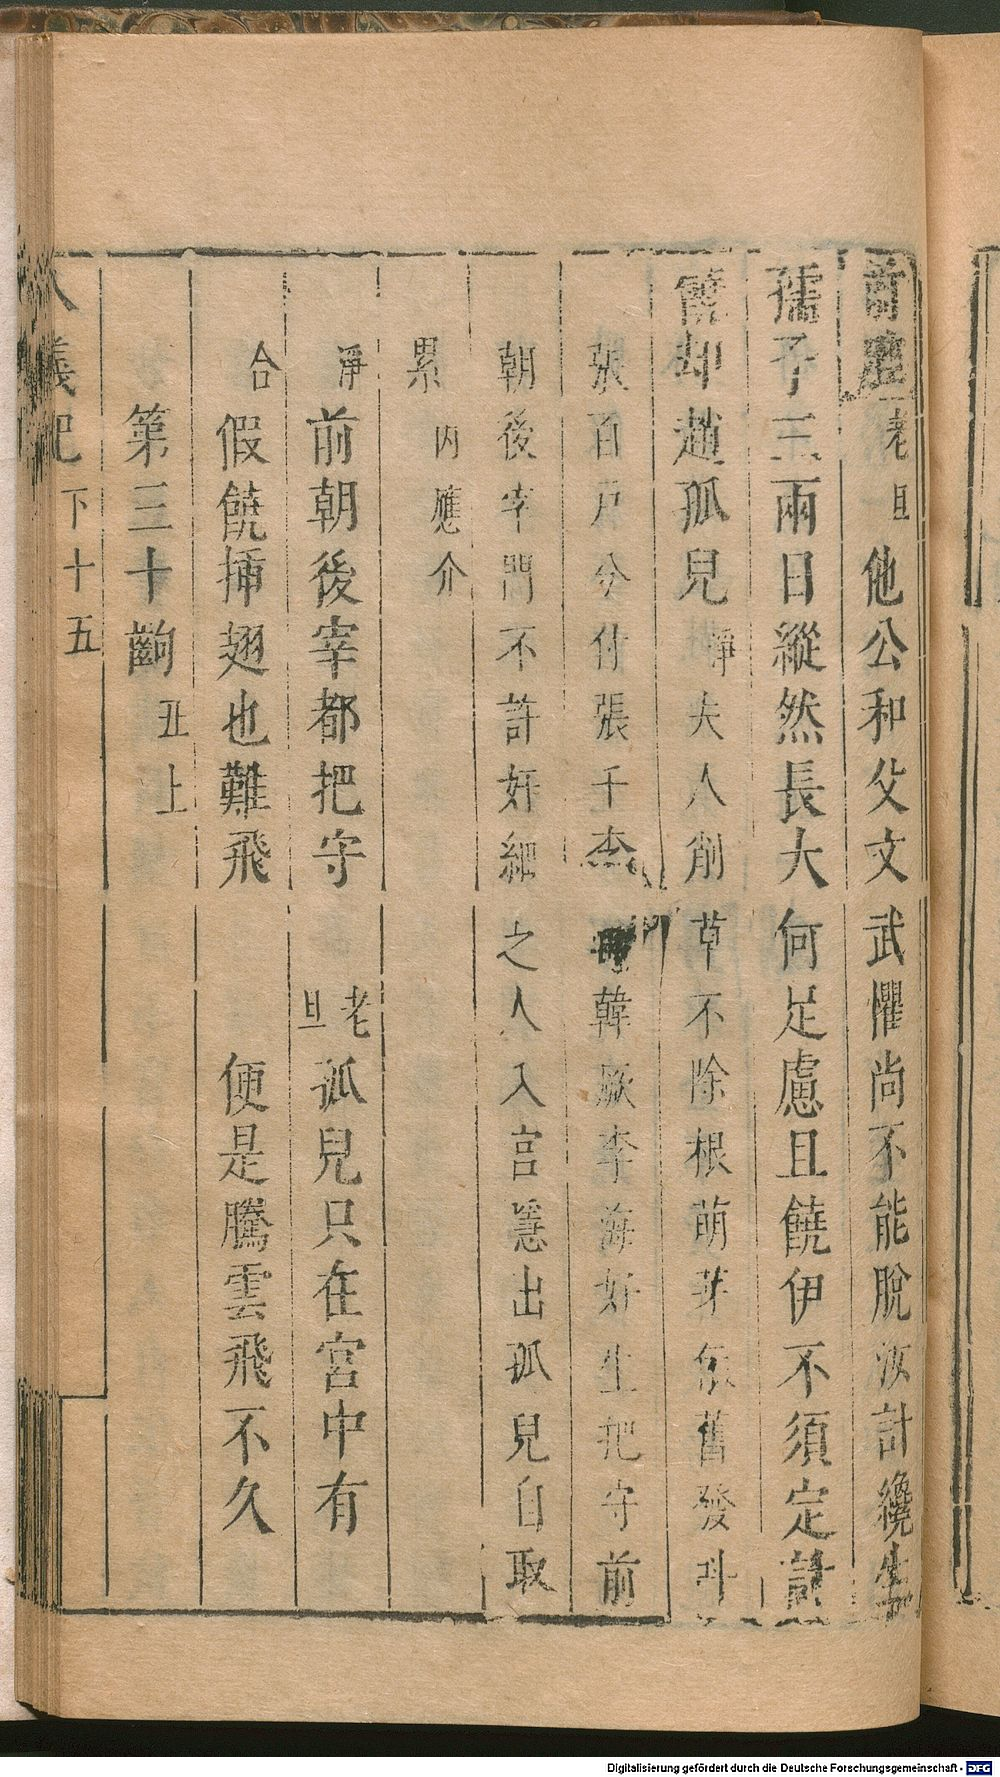 老旦他公和父文武懼尚不能脫汝計纔生下
孺子三兩日縱然長大何足慮且饒伊不須定計
饒却趙孤兒淨夫人削草不除根萌芽依舊發科
張百戶分付張千李 韓厥李海好生把守前
朝後宰門不許奸細之人入宮慝出孤兒自取
累內應介
淨前朝後宰都把守 老旦孤兒只在宮中有
合假饒揷翅也難飛 便是騰雲飛不久
第三十齣 丑上
八義記 下十五
Digitalisierung gefördert durch die Deutsche Forschungsgemeinschaft - DFG